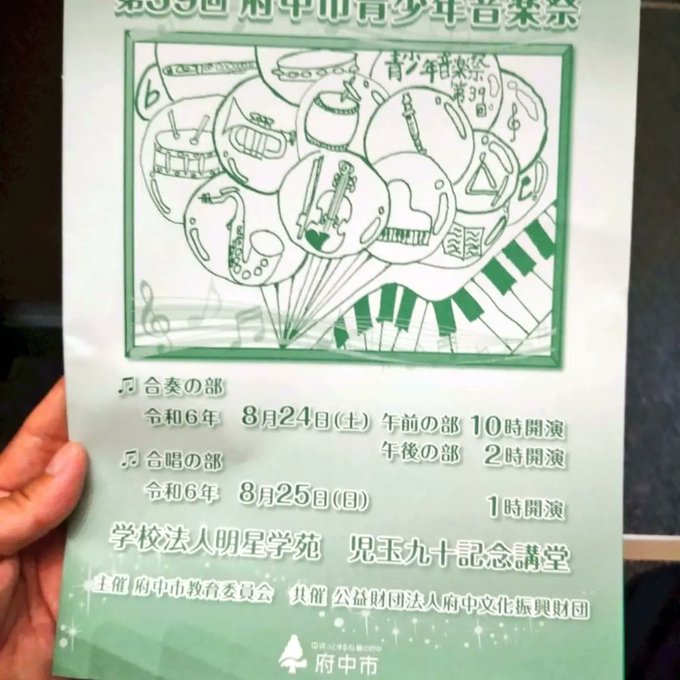 第39回 府中市青少年音楽祭
青少年音楽祭
第39回
♫ 合奏の部
令和6年 8月24日(土) 午前の部 10時開演
午後の部 2時開演
♫ 合唱の部
令和6年 8月25日(日) 1時開演
学校法人明星学苑 児玉九十記念講堂
主催 府中市教育委員会 共催 公益財団法人府中文化振興財団
府中市